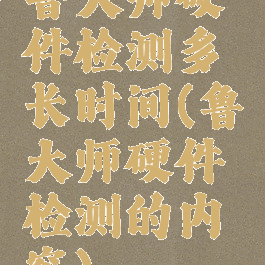 鲁大师硬
件检测多
长时间(鲁
大师硬件
检测的内
容)